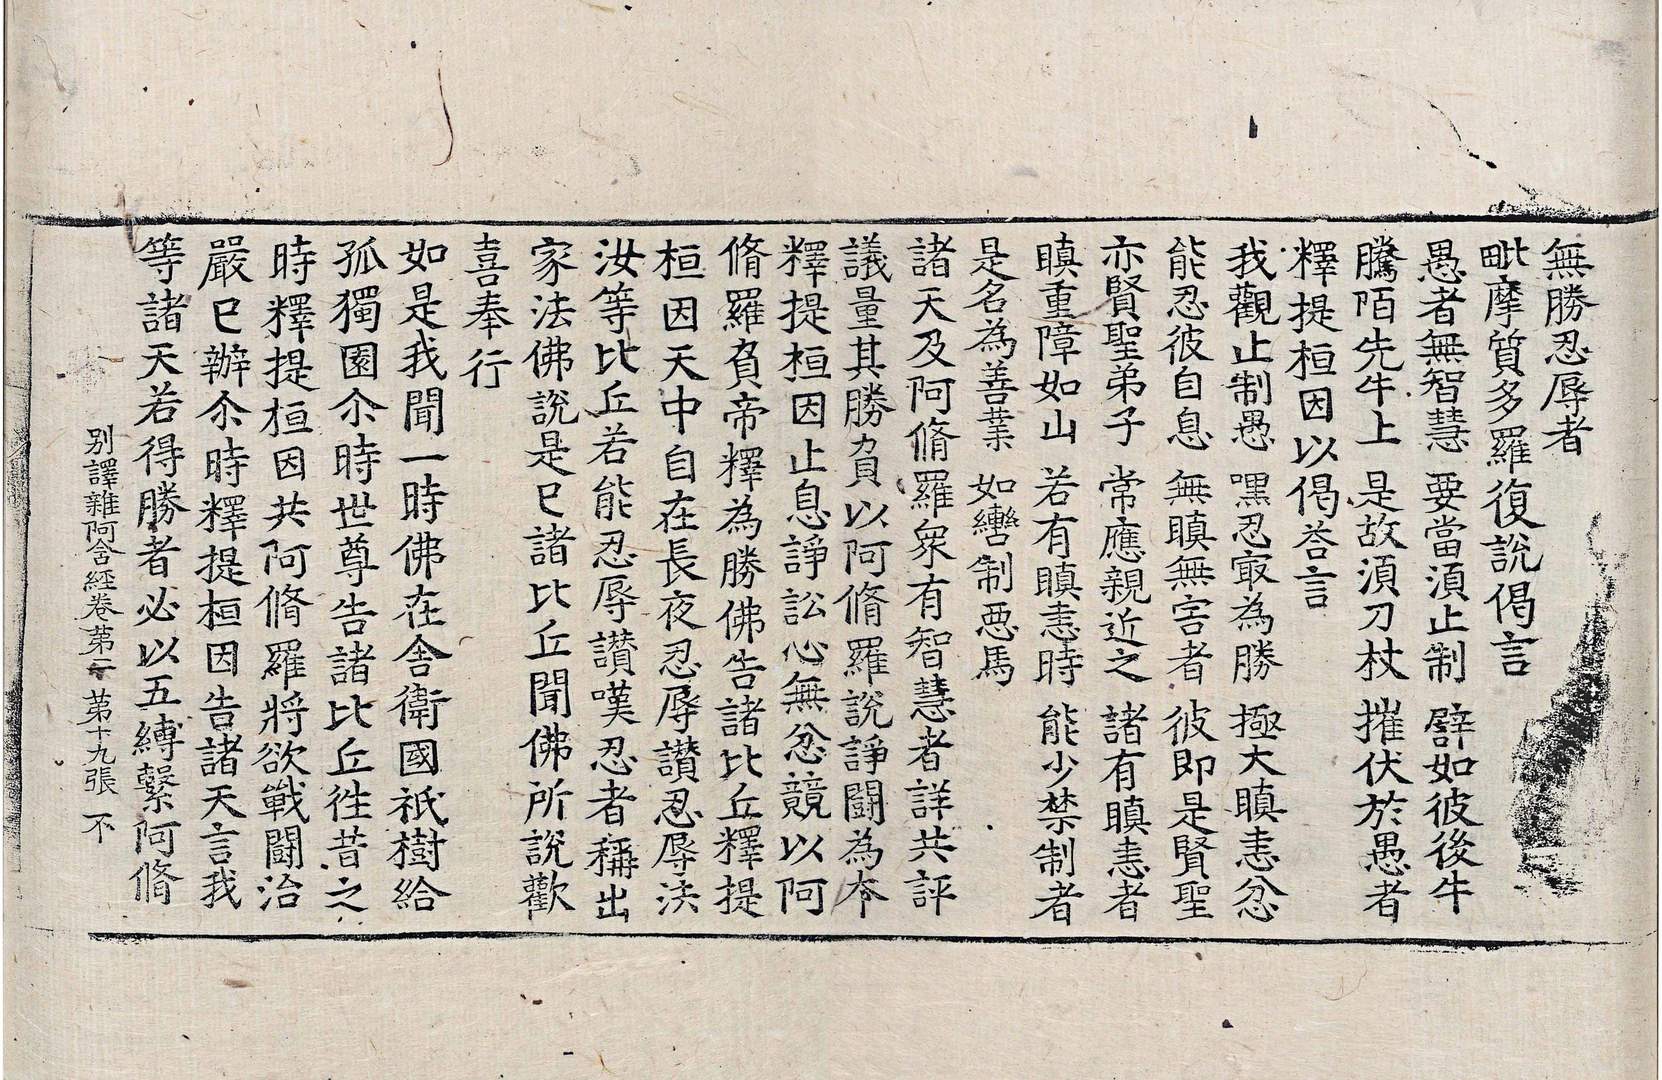 無勝忍辱者
毗摩質多羅復說偈言
愚者無智慧 要當湏止制 譬如彼後牛
騰陌先牛上 是故湏刀杖 摧伏於愚者
釋提桓因以偈荅言
我觀止制愚 嘿忍㝡為勝 極大瞋恚忿
能忍彼自息 無瞋無害者 彼即是賢聖
亦賢聖弟子 常應親近之 諸有瞋恚者
瞋重障如山 若有瞋恚時 能少禁制者
是名為善業 如轡制惡馬
諸天及阿脩羅衆有智慧者詳共評
議量其勝負以阿脩羅說諍鬪為本
釋提桓因止息諍訟心無忿競以阿
脩羅負帝釋為勝佛告諸比丘釋提
桓因天中自在長夜忍辱讚忍辱法
汝等比丘若能忍辱讃嘆忍者稱出
家法佛說是已諸比丘聞佛所說歡
喜奉行
如是我聞一時佛在舍衛國祇樹給
孤獨園尒時世尊告諸比丘徃昔之
時釋提桓因共阿脩羅將欲戰鬪治
嚴已辦尒時釋提桓因告諸天言我
等諸天若得勝者必以五縛繫阿脩
別譯雜阿含經卷第二 第十九張 不